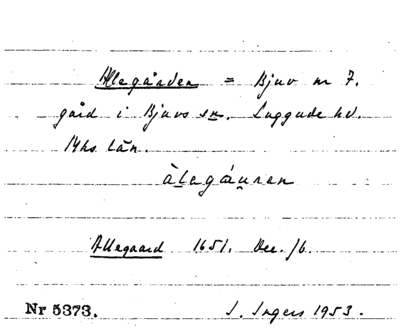 Allegården = Bjuv nr 7.
gård i Bjuvs sn. Luggude hd.
Mhs län.
àlegáu̯ren
Allegaard 1651. Dec. /b.
Nr 5373. I. Ingers 1953.